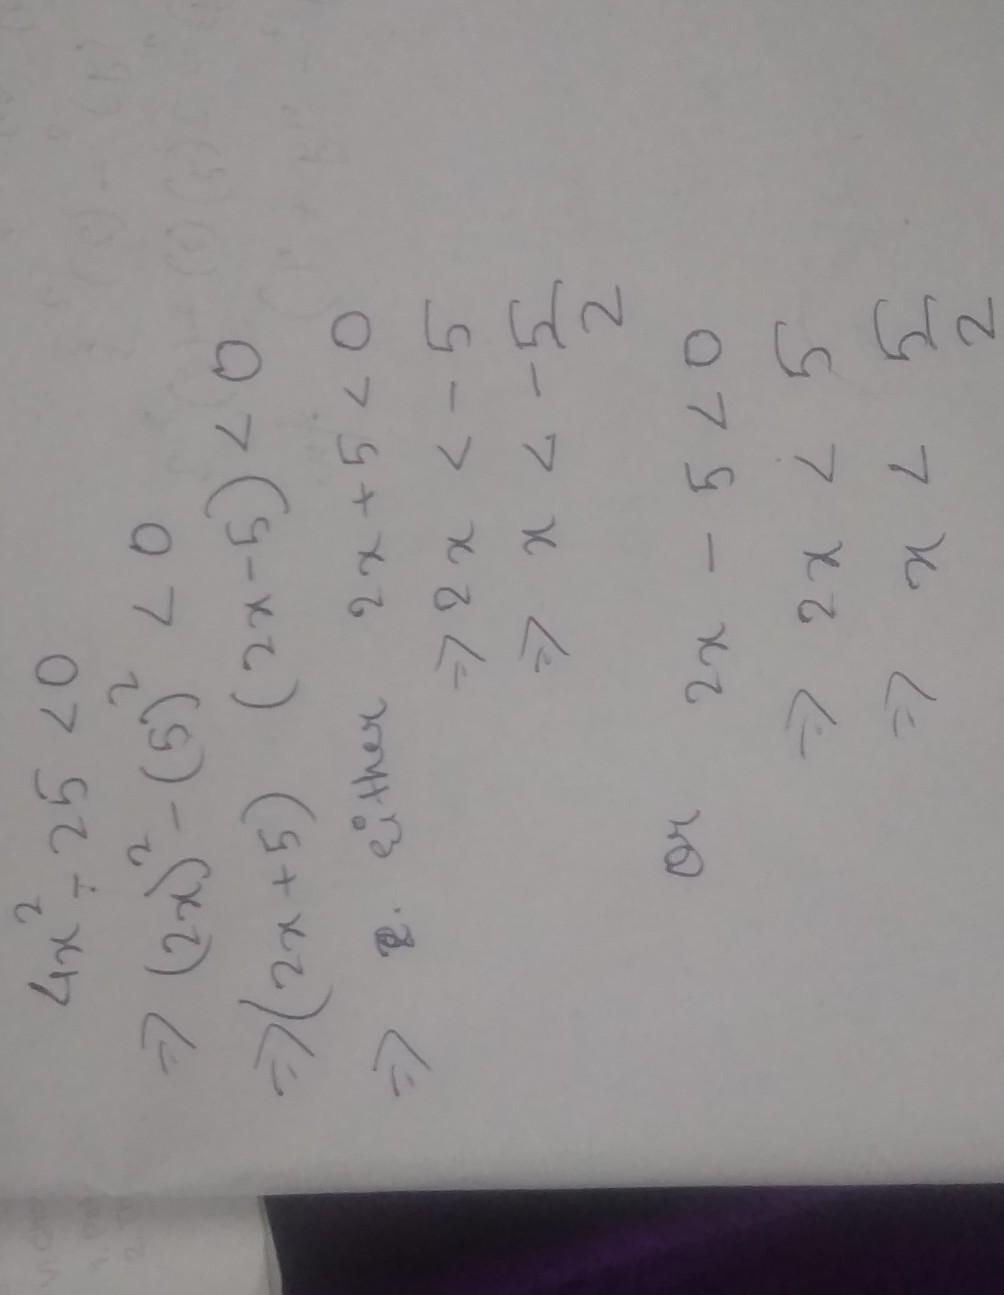 4x² - 25 < 0
⇒ (2x)² - (5)² < 0
⇒ (2x + 5) (2x - 5) < 0
⇒ either 2x + 5 < 0
⇒ 2x < - 5
⇒ x < - 5/2
or 2x - 5 < 0
⇒ 2x < 5
⇒ x < 5/2